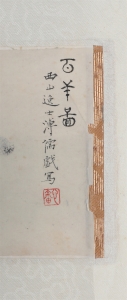 百羊圖
西山逸士溥儒戲寫